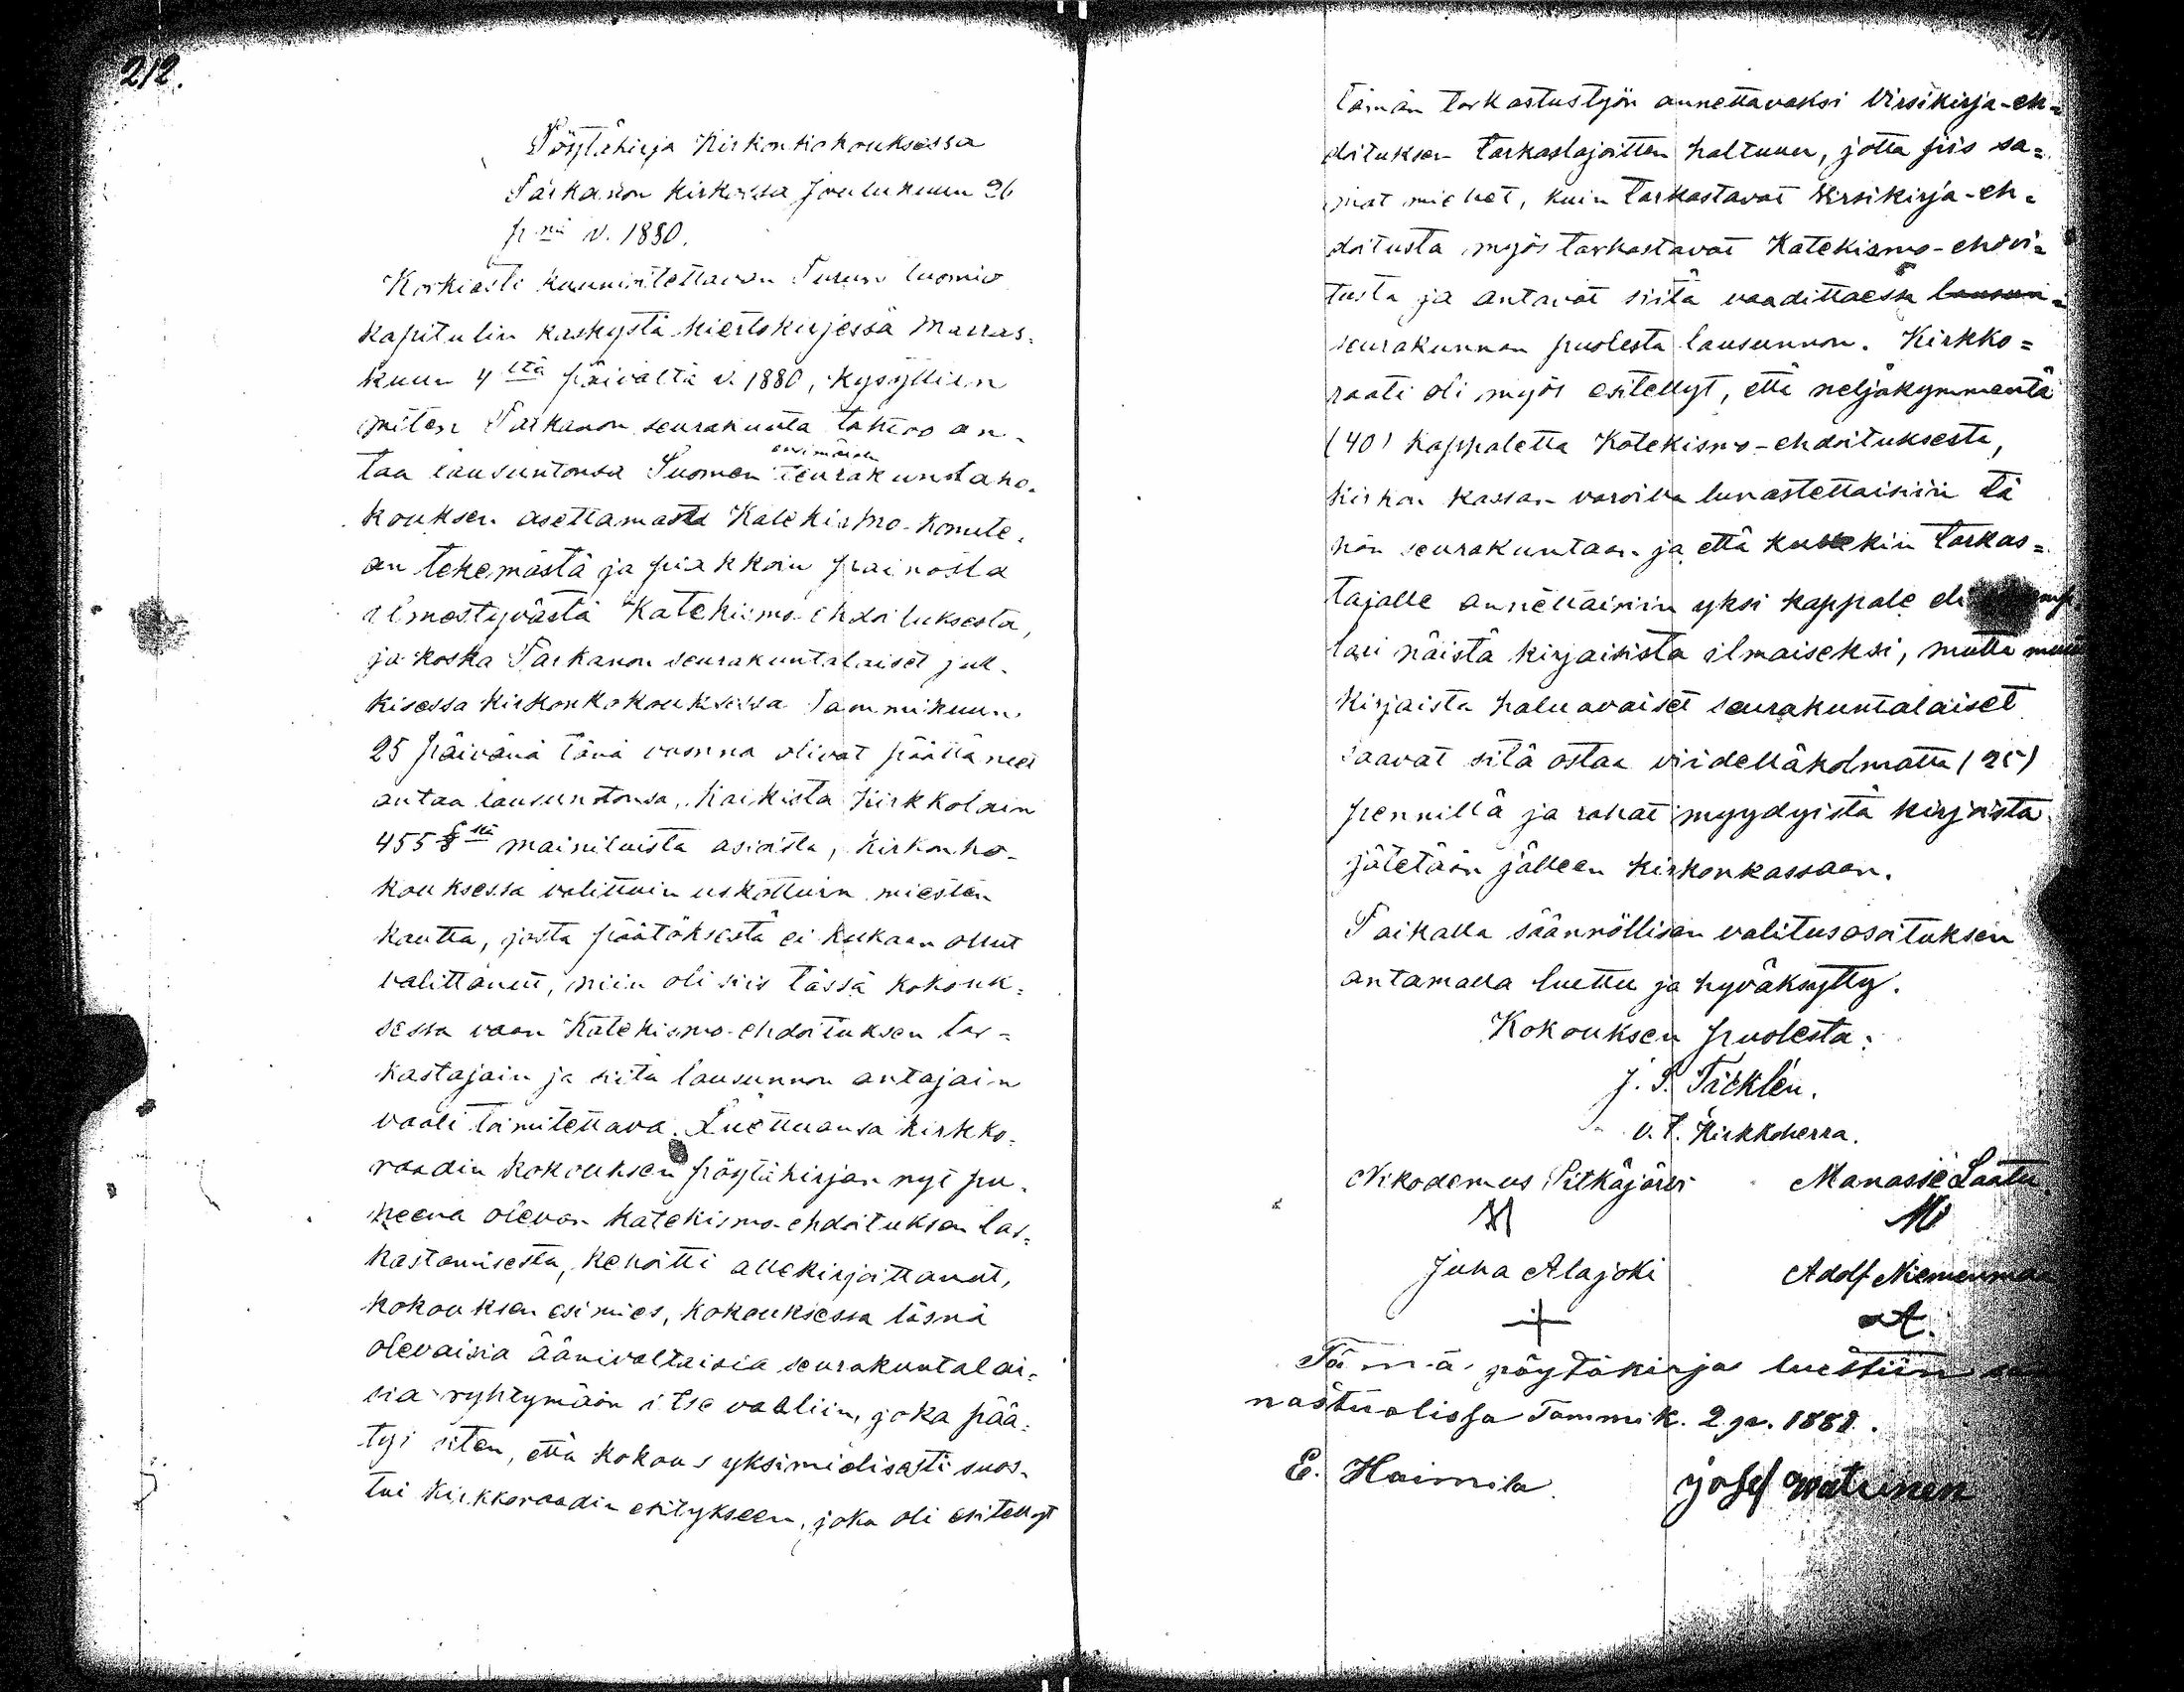 212.
Pöytäkirja Kirkonkokouksessa
Parkanon kirkossa Joulukuun 26
p:nä v. 1880.
Korkiasti kunnioitettavan Turun tuomio
kapitulin käskystä kiertokirjessä Marras-
kuun 4ltä päivältä v. 1880, kysyttiin
miten Parkanon seurakunta tahtoo an-
taa lausuntonsa Suomen ensimäisen seurakunstako-
kouksen asettamasta Katekismo-komite-
an tekemästä ja piakkoin painosta
ilmestyvästä Katekismo-ehdoituksesta,
ja koska Parkanon seurakuntalaiset jul-
kisessa kirkonkokouksessa Tammikuun
25 päivänä tänä vuonna olivat päättäneet
antaa lausuntonsa, kaikista Kirkkolain
455 §ssä mainituista asioista, kirkonko-
kouksessa valittuin uskottuin miesten
kautta, josta päätöksestä ei kukaan ollut
valittanut, niin oli siis tässä kokouk-
sessa vaan Katekismo-ehdoituksen tar-
kastajain ja siitä lausunnon antajain
vaali toimitettava. Luettuansa kirkko-
raadin kokouksen pöytäkirjan nyt pu-
heena olevan katekismo-ehdoituksen tar-
kastamisesta, kehoitti allekirjoittanut,
kokouksen esimies, kokouksessa läsnä
olevaisia äänivaltaisia seurakuntalai-
sia ryhtymään itse vaaliin, joka pää-
tyi siten, että kokous yksimielisesti suos-
tui Kirkkoraadin esitykseen, joka oli esitellyt
tämän tarkastustyön annettavaksi Virsikirja-eh-
doituksen tarkastajoitten haltuun, jotta siis sa-
mat miehet, kuin tarkastavat Virsikirja-eh-
doitusta myös tarkastavat Katekismo-ehdoi-
tusta ja antavat siitä vaadittaessa lausun-
seurakunnan puolesta lausunnon. Kirkko-
raati oli myös esitellyt, että neljäkymmentä
(40) kappaletta Katekismo-ehdoituksesta,
kirkon kassan varoilla lunastettaisiin tä
hän seurakuntaan ja että kullekin tarkas-
tajalle annettaisiin yksi kappale eli
lari näistä kirjaisista ilmaiseksi, mutta muut
kirjaista haluavaiset seurakuntalaiset
saavat sitä ostaa viidelläkolmatta (25)
pennillä ja rahat myydyistä kirjoista
jätetään jälleen kirkonkassaan.
Paikalla säännöllisen valitusosoituksen
antamalla luettu ja hyväksytty.
Kokouksen puolesta:
J. S. Täcklén.
v.t. Kirkkoherra.
Nikodemus Pitkäjärvi Manasse Laatu.
Juha Alajoki Adolf Niemenmaa
Tämä pöytäkirja luettiin
nastuolissa Tammik. 2 p. 1881.
E. Haimila Josef Watunen